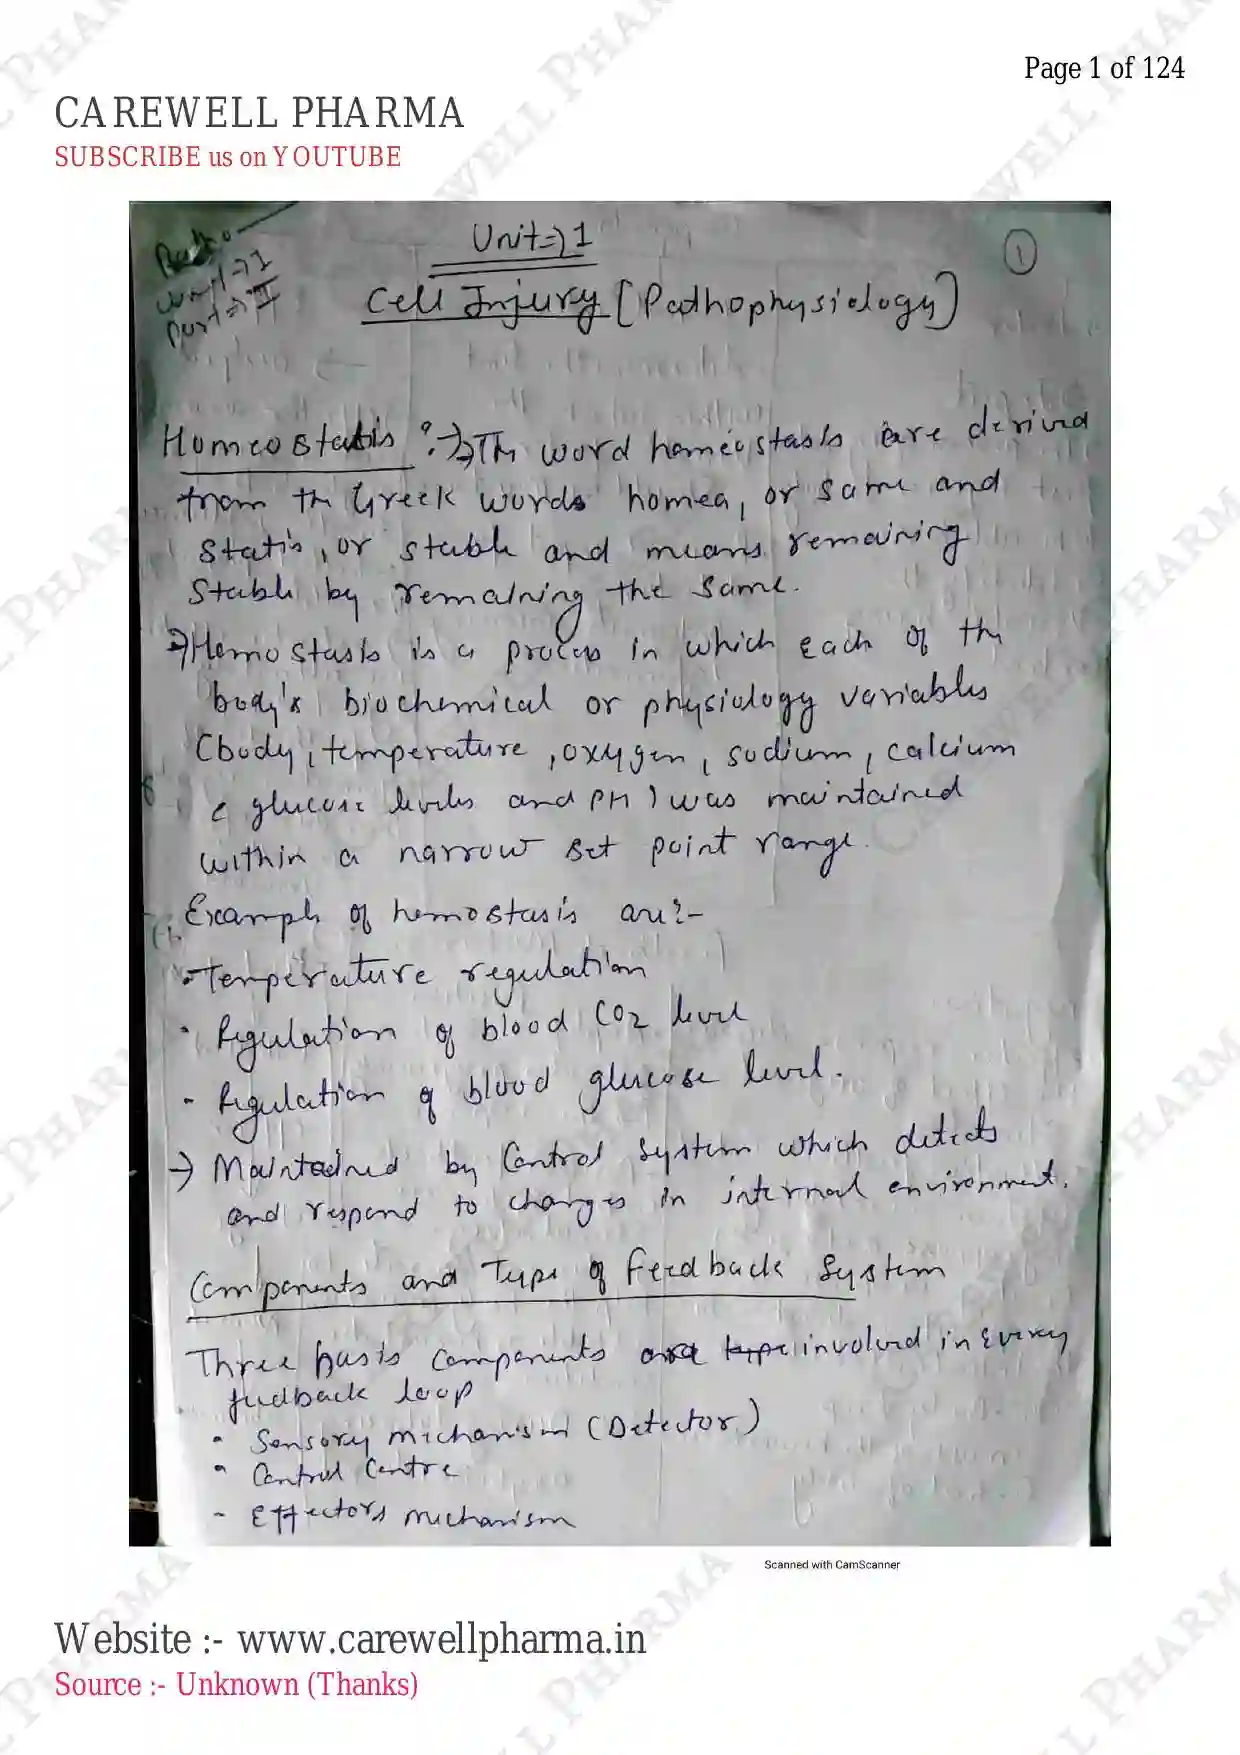 Page 1 of 124
CAREWELL PHARMA
SUBSCRIBE us on YOUTUBE
Unit ⇒ 1
1
Part ⇒ II
Cell Injury [Pathophysiology]
Homeostatis :→ The word homeostasis are derived
from the Greek words homea, or same and
Statis, or stable and means remaining
Stable by remaining the same.
⇒ Hemostasis is a process in which each of the
body's biochemical or physiology variables
(body, temperature, oxygen, sodium, calcium
& glucose levels and PH) was maintained
within a narrow set point range.
Example of hemostasis are:-
• Temperature regulation
• Regulation of blood CO2 level
• Regulation of blood glucose level.
→ Maintained by Control System which detects
and respond to changes in internal environment.
Components and Type of Feedback System
Three basis components are involved in Every
feedback loop
• Sensory mechanism (Detector)
• Control Centre
- Effectors mechanism
Scanned with CamScanner
Website :- www.carewellpharma.in
Source :- Unknown (Thanks)